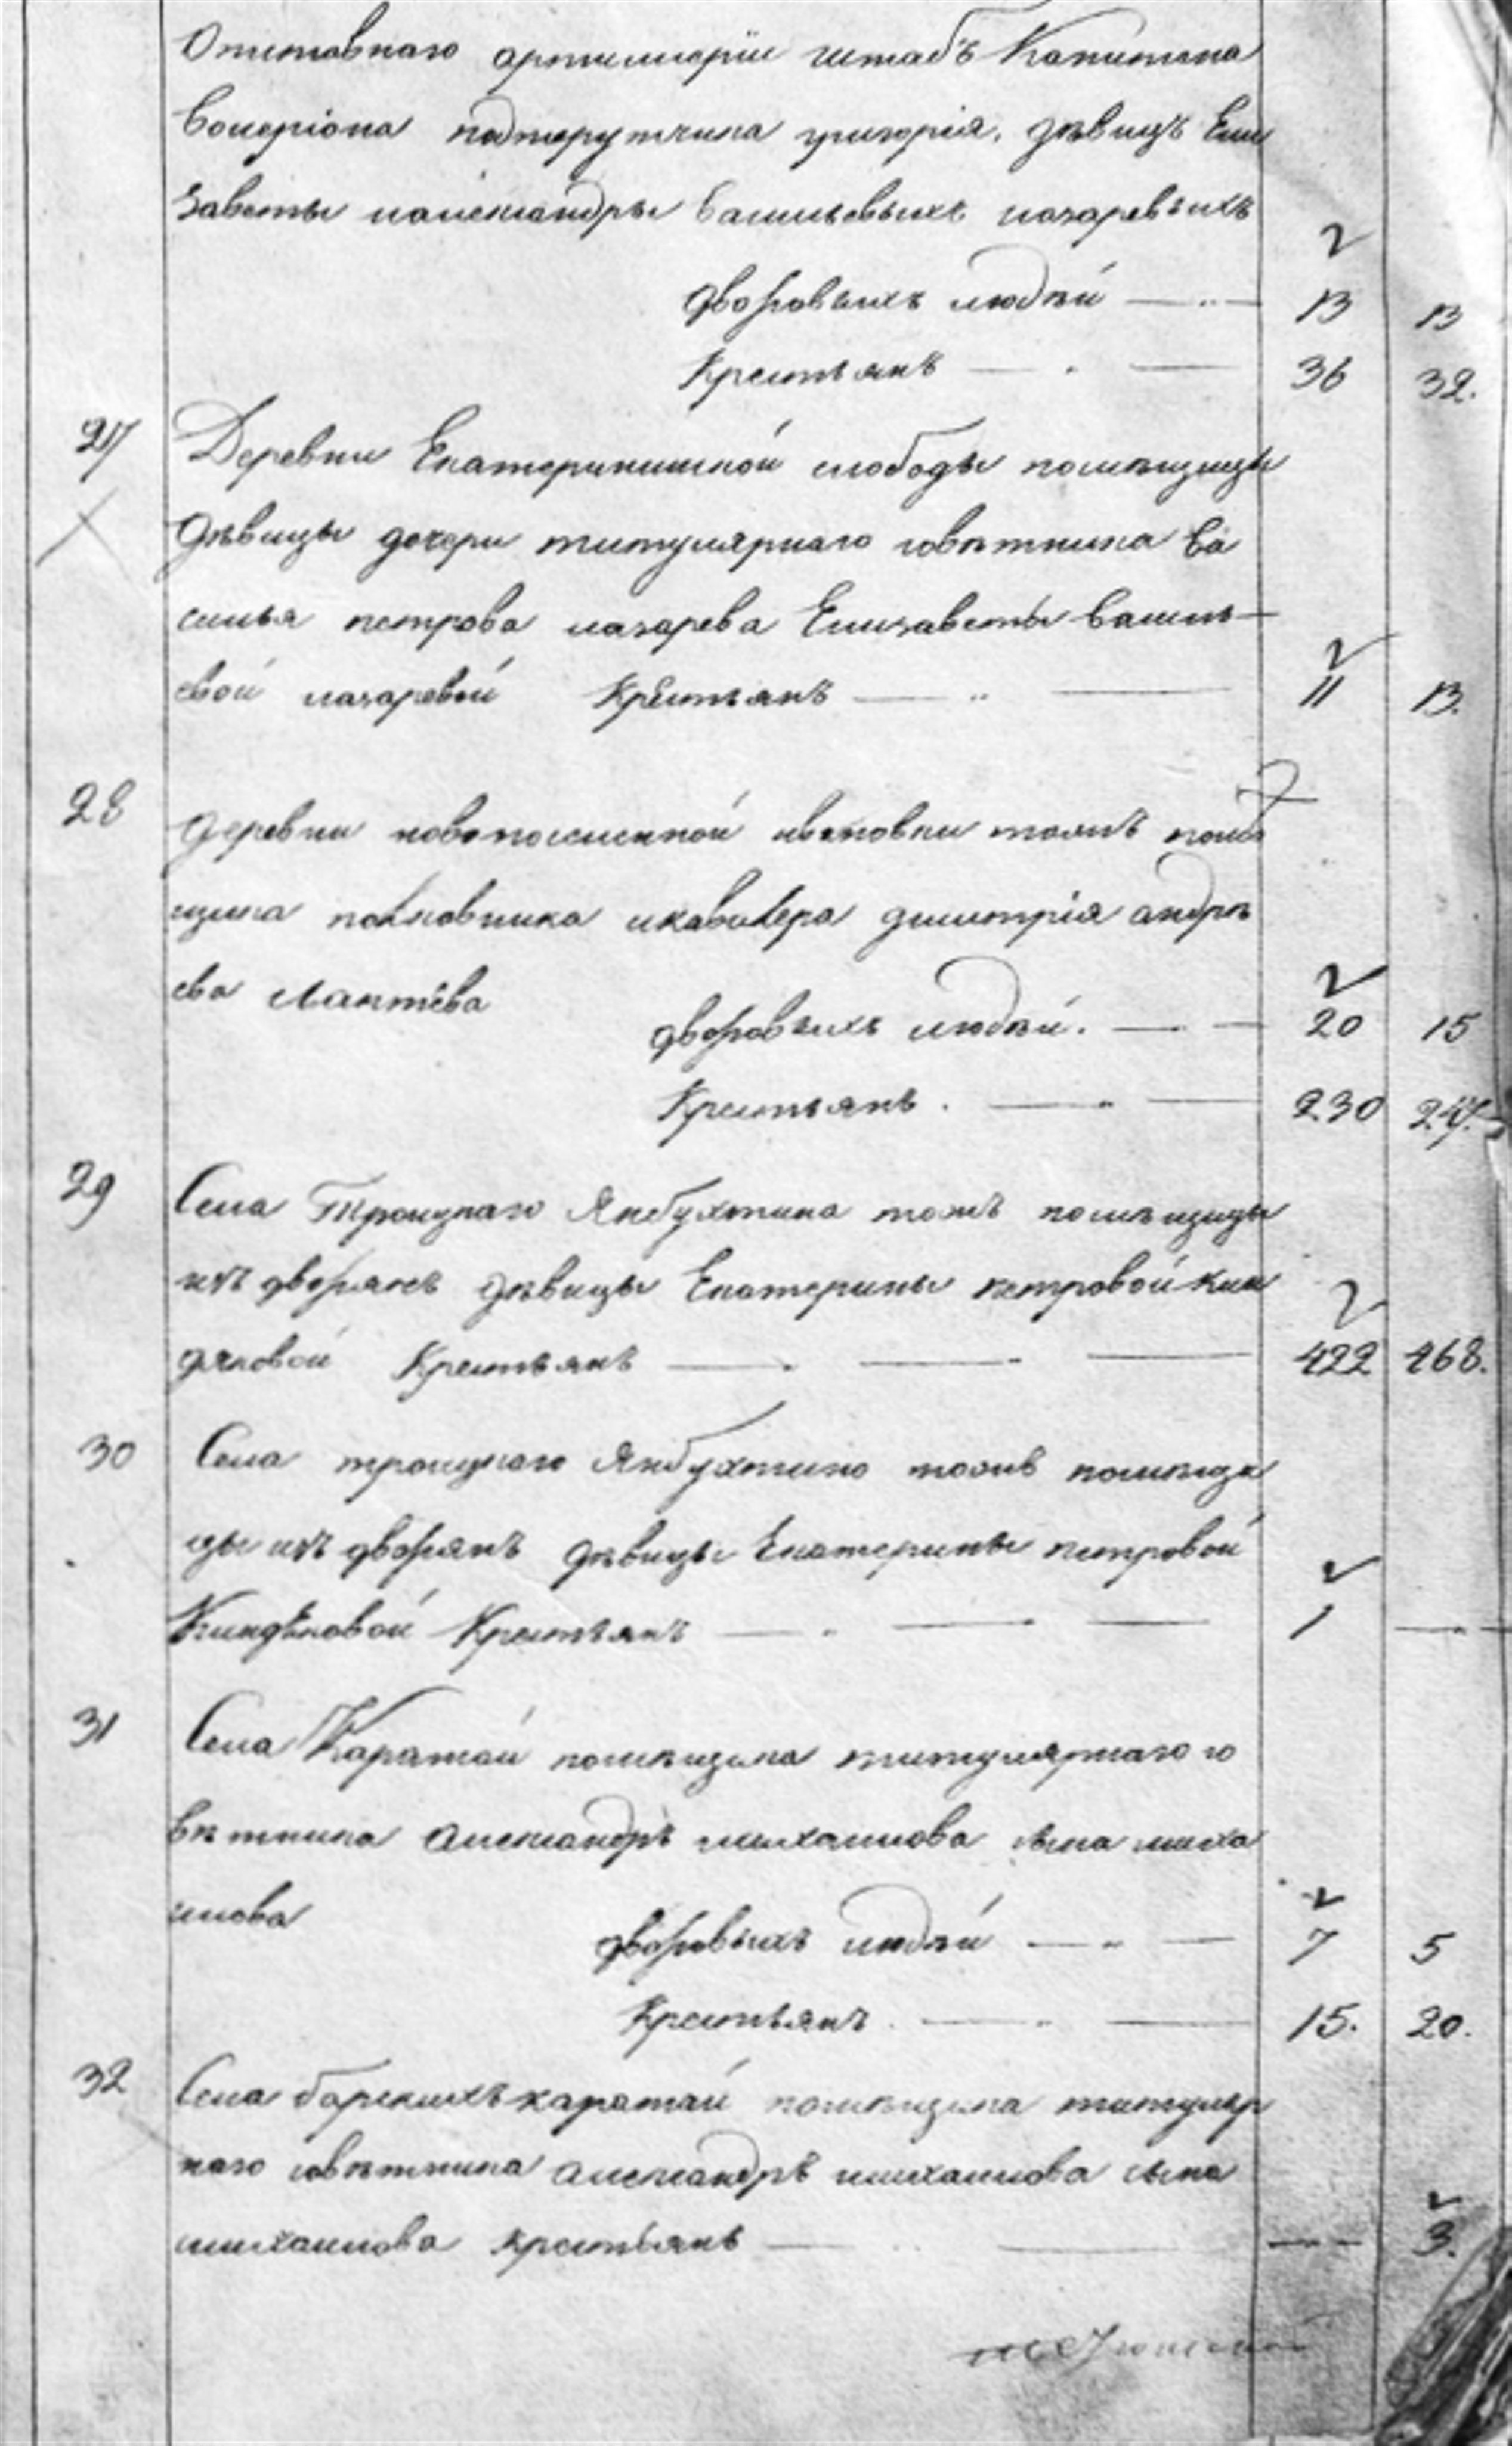 Отставнаго артиллерiи штабъ Капитана
Валерiона подпорутчика григорiя, дѣвицъ Ели
заветы иалександры васильевыхъ лазаревыхъ
дворовыхъ людѣй — 13 13
Крестьянъ — 36 32.
27 Деревни Екатерининской слободы помѣщицы
дѣвицы дочери титулярнаго совѣтника Ва
силья петрова лазарева Елизаветы василь-
евой лазаревой Крестьянъ — 11 13.
28 деревни новопоселенной тожъ помѣ
щика полковника икавалера димитрiя андрѣ
ева Лаптева
дворовыхъ людѣй. — 20 15
Крестьянъ. — 230
29 Села Троицкаго Янбухтина тожъ помѣщицы
изъ дворянъ дѣвицы Екатерины петровой кин
дяковой Крестьянъ — 422 468.
30 Села троицкаго Янбухтино тожъ помѣщи
цы изъ дворянъ дѣвицы Екатерины петровой
Киндяковой Крестьянъ — 1 —
31 Села Каратай помѣщика титулярнаго со
вѣтника александръ михаилова сына миха
илова
дворовыхъ людѣй — 7 5
Крестьянъ. — 15. 20.
32 Села барскихъ каратай помѣщика титуляр
наго совѣтника александръ михаилова сына
михаилова крестьянъ — — 3.